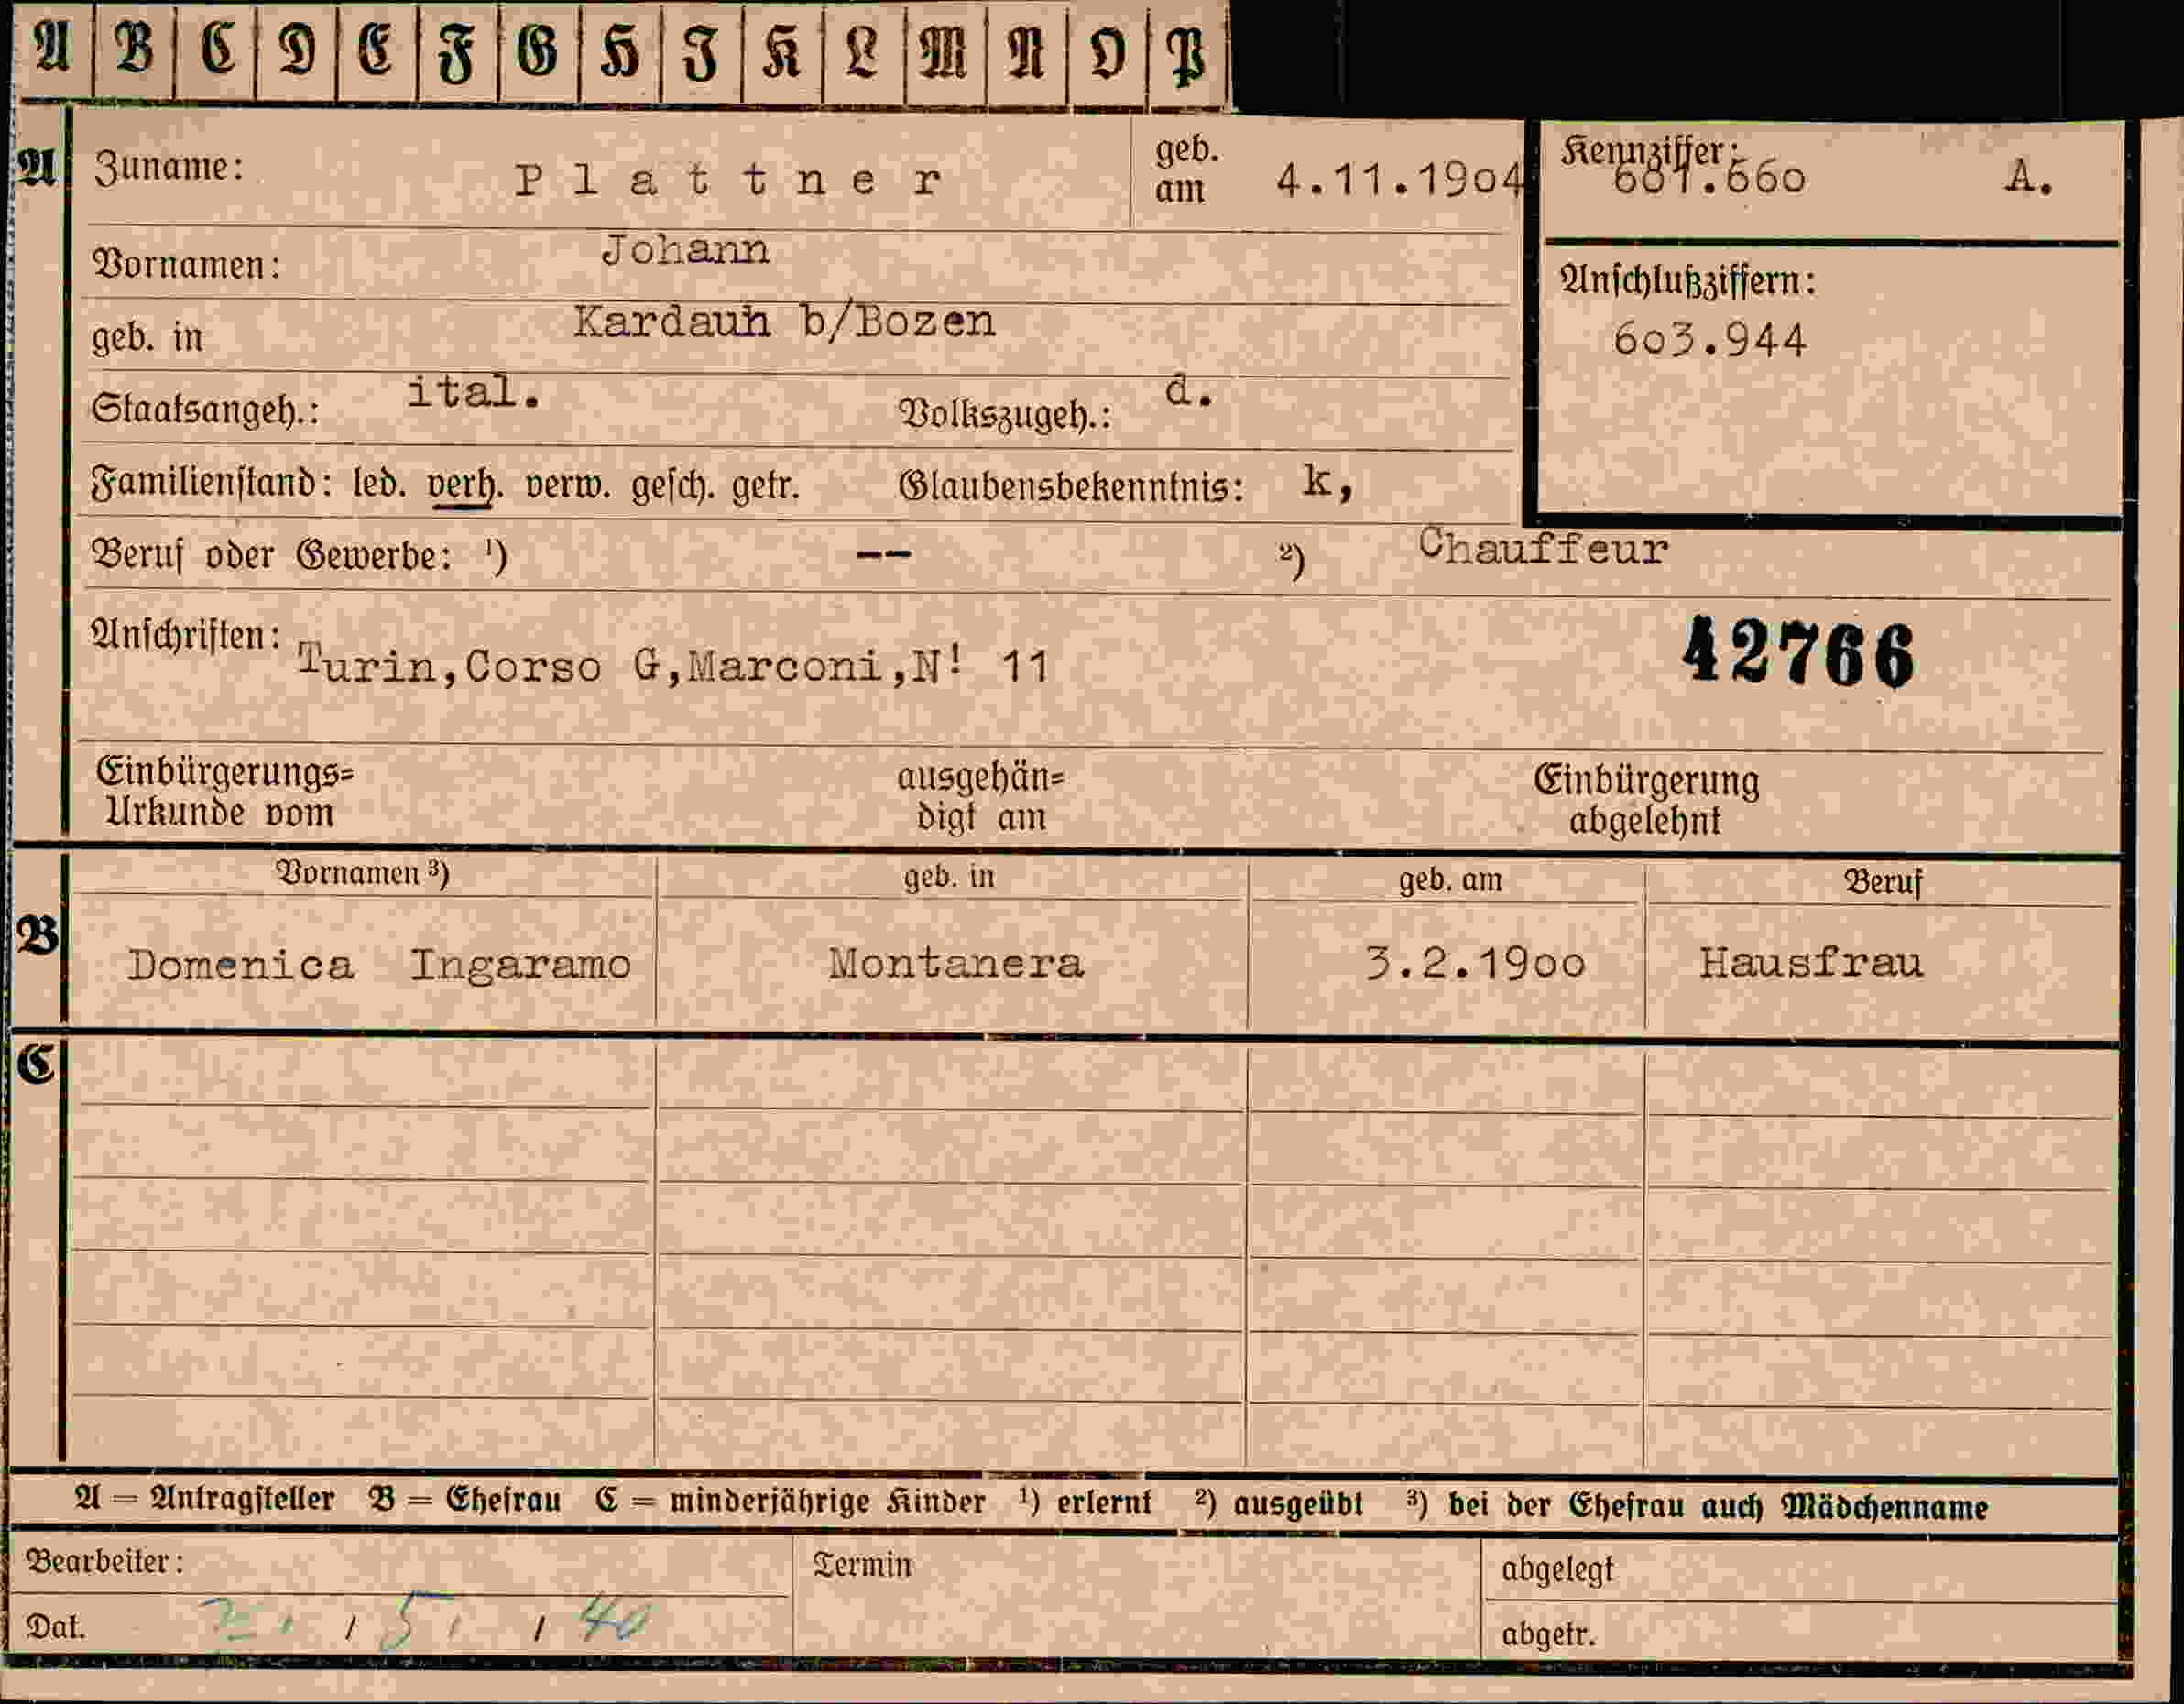 A B C D E F G H I K L M N O P
A Zuname: Plattner geb. am 4.11.1904 Kennziffer: 601.660 A.
Vornamen: Johann
Anschlußziffern:
geb. in Kardauh b/Bozen
603.944
Staatsangeh.: ital. Volkszugeh.: d.
Familienstand: led. verh. verw. gesch. getr. Glaubensbekenntnis: k,
Beruf oder Gewerbe: ¹) -- ²) Chauffeur
Anschriften: Turin,Corso G,Marconi,N! 11
42766
Einbürgerungs= ausgehän= Einbürgerung
Urkunde vom digt am abgelehnt
Vornamen ³) geb. in geb. am Beruf
B Domenica Ingaramo Montanera 3.2.1900 Hausfrau
C
A = Antragsteller B = Ehefrau C = minderjährige Kinder ¹) erlernt ²) ausgeübt ³) bei der Ehefrau auch Mädchenname
Bearbeiter: Termin abgelegt
Dat. / 5 / 40 abgetr.